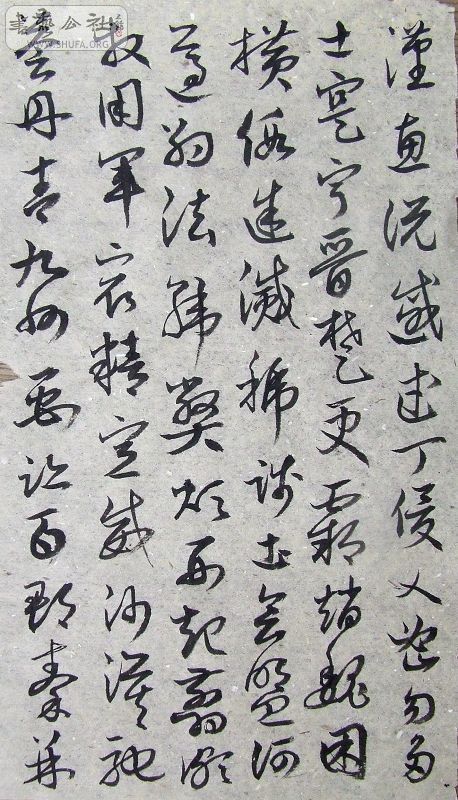 漢惠說感武丁俊乂密勿多
士寔寧晉楚更霸趙魏困
橫假途滅虢踐土會盟何
遵約法韓弊煩刑起翦頗
牧用軍最精宣威沙漠馳
譽丹青九州禹跡百郡秦并
書藝公社
SHUFA.ORG